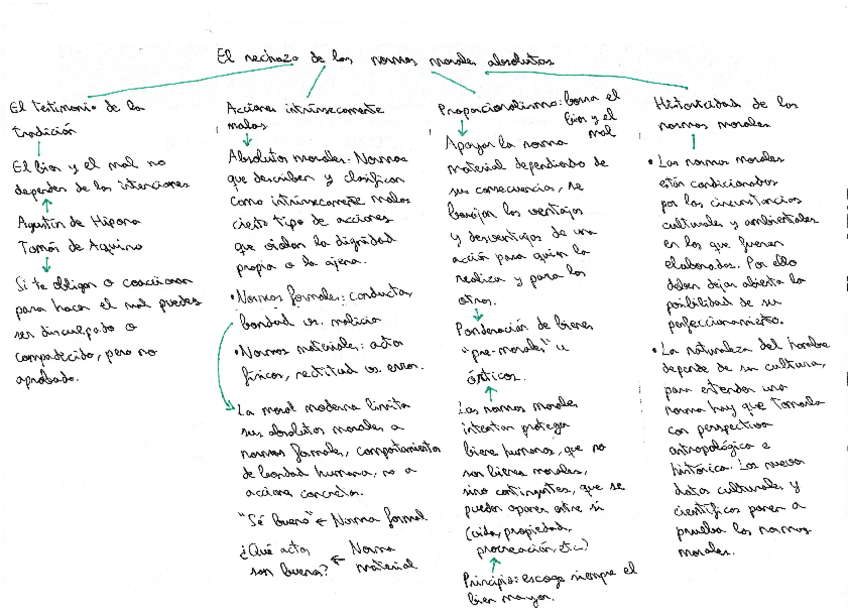 El rechazo de las normas morales absolutas
El testimonio de la
tradición
El bien y el mal no
dependen de las intenciones
Agustín de Hipona
Tomás de Aquino
Si te obligan o coaccionan
para hacer el mal puedes
ser disculpado o
compadecido, pero no
aprobado.
Acciones intrínsecamente
malas
Absolutos morales: Normas
que describen y clasifican
como intrínsecamente malas
cierto tipo de acciones
que violan la dignidad
propia o la ajena.
• Normas formales: conducta,
bondad vs. malicia
• Normas materiales: actos
físicos, rectitud vs error.
La moral moderna limita
sus absolutos morales a
normas formales, comportamientos
de bondad humana, no a
acciones concretas.
"Sé bueno" ← Norma formal
¿Qué actos ← Norma
son buenos? material
Proporcionalismo: borra el
bien y el
mal
Apoyar la norma
material dependiendo de
sus consecuencias, se
barajan las ventajas
y desventajas de una
acción para quien la
realiza y para los
otros.
Ponderación de bienes
"pre-morales" u
ónticos.
Las normas morales
intentan proteger
bienes humanos, que no
son bienes morales,
sino contingentes, que se
pueden oponer entre sí
(vida, propiedad,
procreación, etc.)
Principio: escoge siempre el
bien mayor.
Historicidad de las
normas morales
• Las normas morales
están condicionadas
por las circunstancias
culturales y ambientales
en las que fueron
elaboradas. Por ello
deben dejar abierta la
posibilidad de su
perfeccionamiento.
• La naturaleza del hombre
depende de su cultura,
para entender una
norma hay que tomarla
con perspectiva
antropológica e
histórica. Los nuevos
datos culturales y
científicos ponen a
prueba las normas
morales.